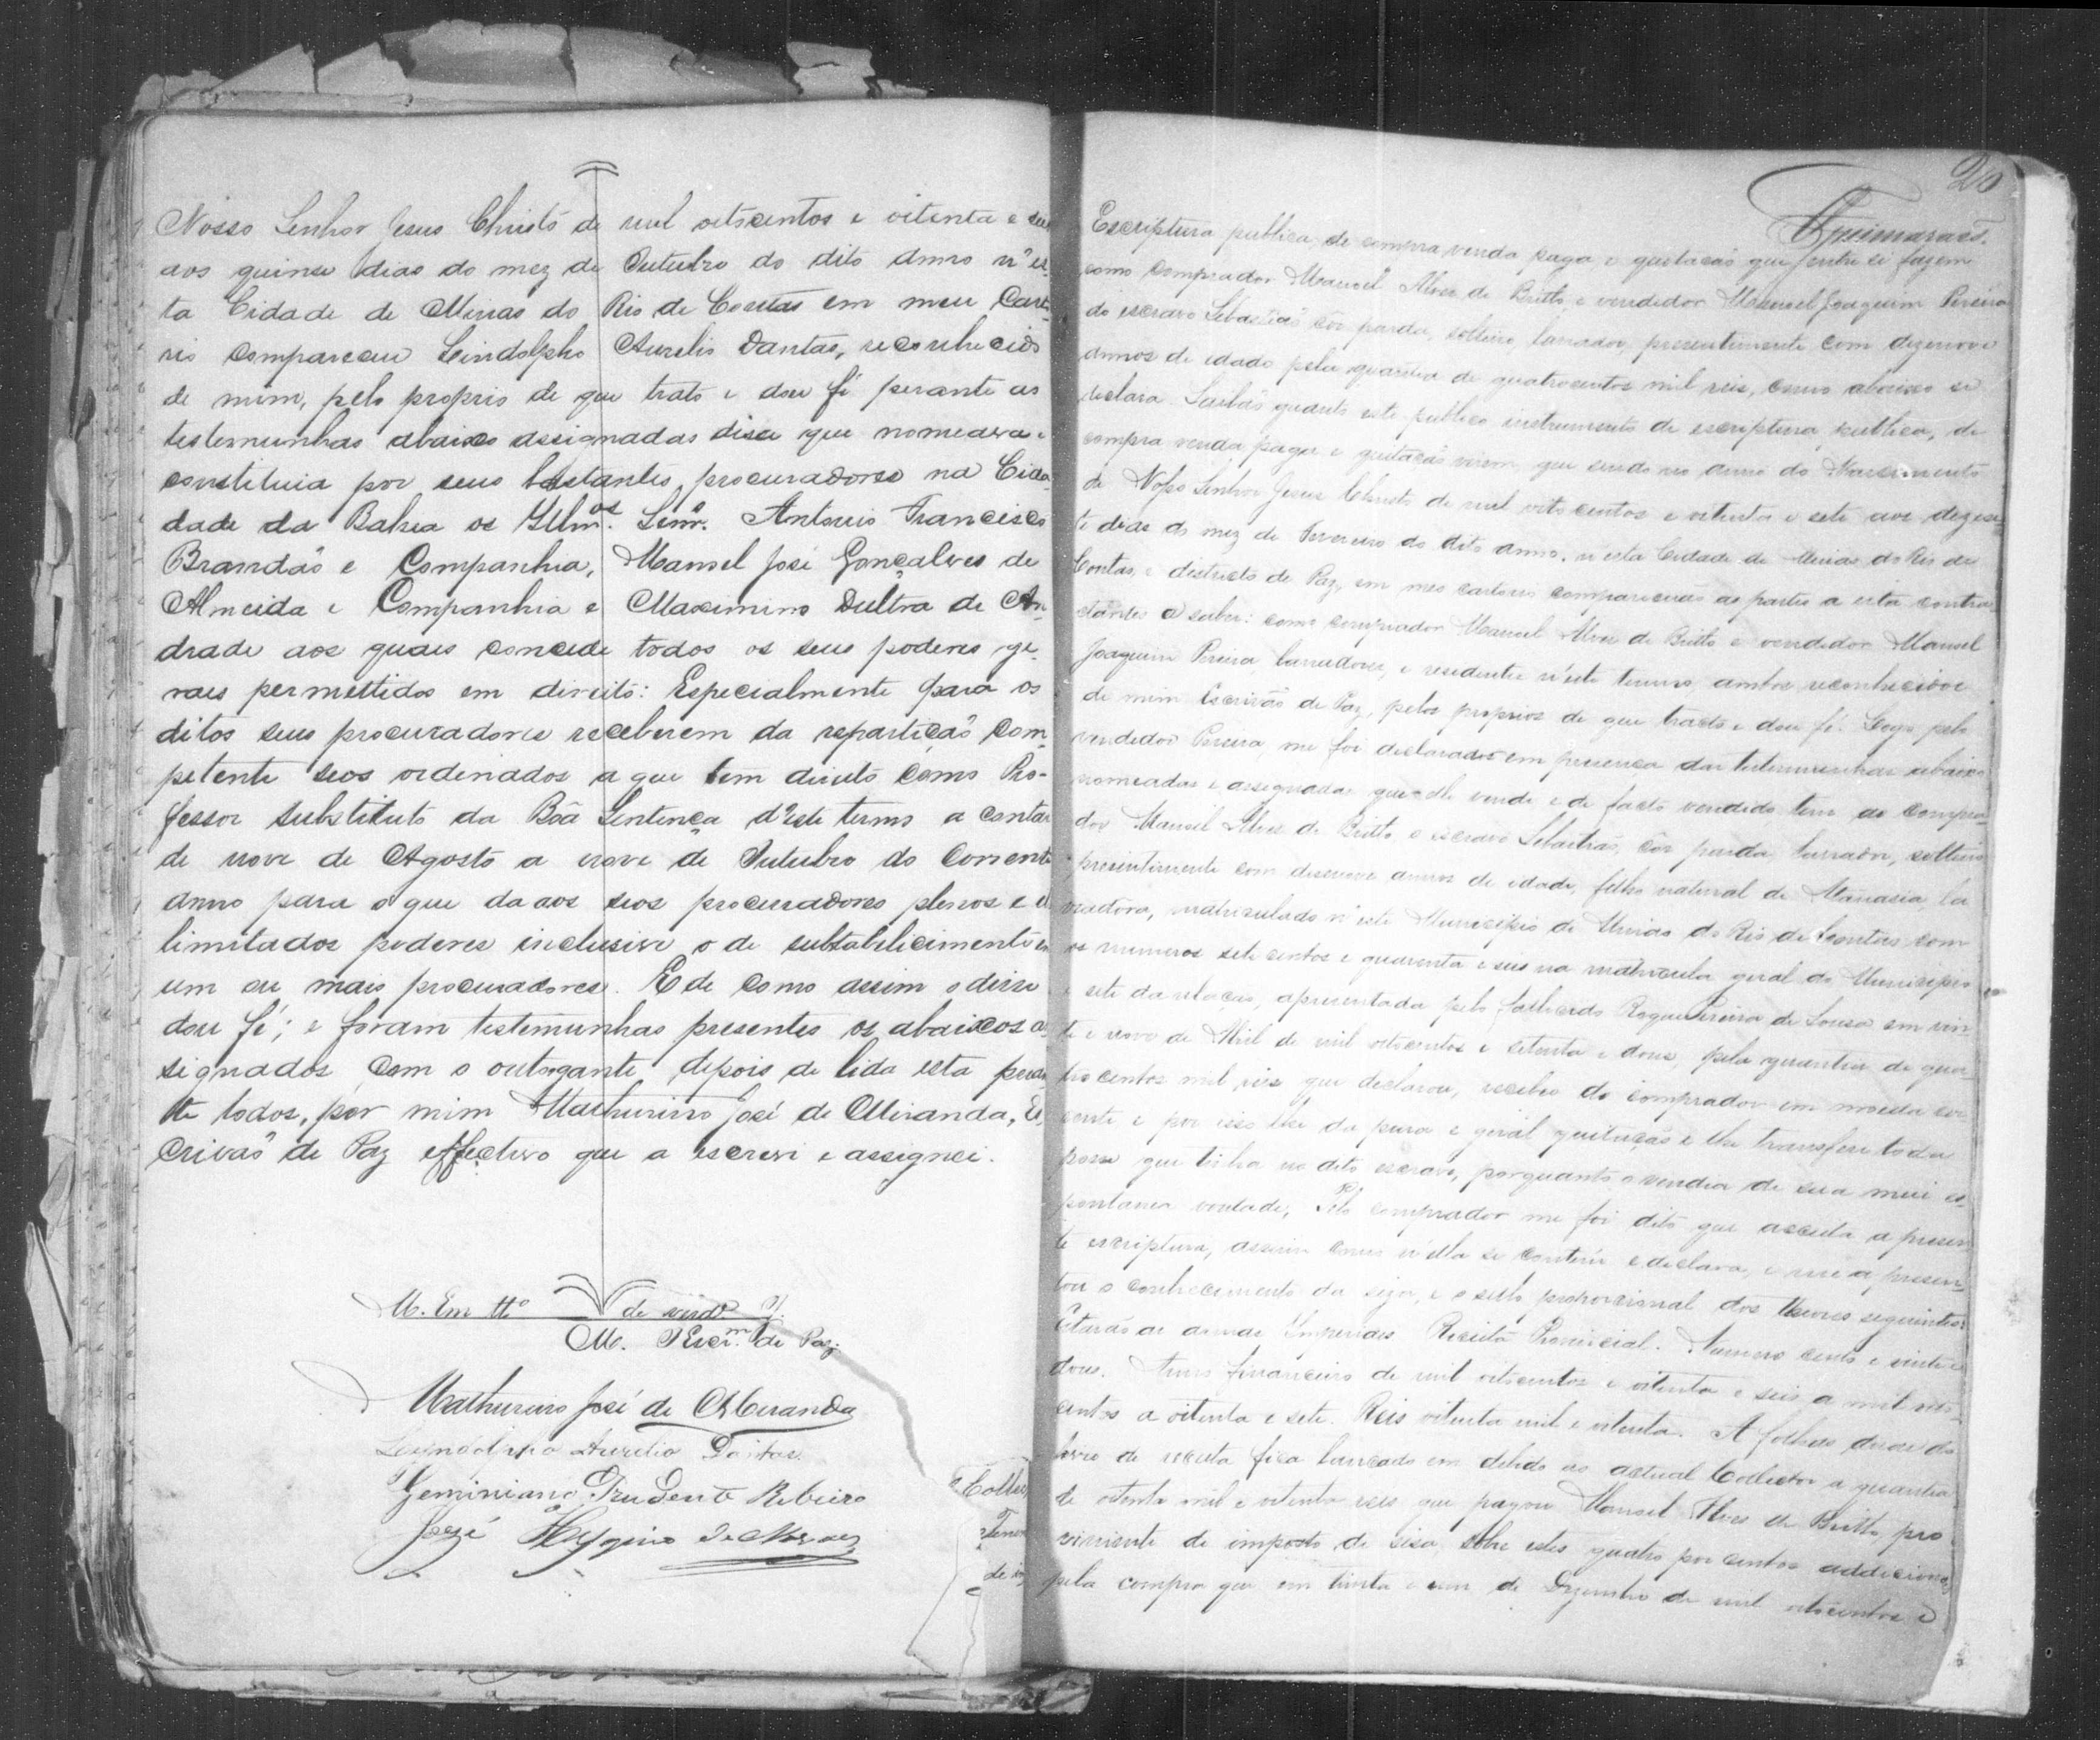 Nosso Senhor Jesus Christo de mil oitocentos e oitenta e seis
aos quinse dias do mez de Outubro do dito anno n'es-
ta Cidade de Minas do Rio de Contas em meu Carto-
rio compareceu Lindolpho Aurelio Dantas, reconhecido
de mim, pelo proprio de que trato e dou fé perante as
testemunhas abaixo assignadas disse que nomeava e
constituia por seus bastantes procuradores na Cida-
dade da Bahia os Illmos. Senr. Antonio Francisco
Brandão e Companhia, Manoel José Gonçalves de
Almeida e Companhia e Maximino Dultra de An-
drade aos quaes concede todos os seus poderes ge-
raes permettidos em direito: Especialmente para os
ditos seus procuradores receberem da repartição com-
petente seos ordenados a que tem direito como Pro-
fessor substituto da Bôa Sentença d'este termo a contar
de nove de Agosto a nove de Outubro do corrente
anno para o que da aos seos procuradores plenos e il-
limitados poderes inclusive o de substabelicimento em
um ou mais procuradores. E de como assim o disse
dou fé; e foram testemunhas presentes os abaixos as-
signados com o outorgante, depois de lida esta peran-
te todos, por mim Mathurino José de Miranda, Es-
crivão de Paz effectivo que a escrevi e assignei.
M. Em tto de verde.
M. Escrm. de Paz
Mathurino José de Miranda
Lyndolpho Aurelio Dantas
Geminiano Prudente Ribeiro
José Hygino de Moraes
Collec
de
20
Guimarães.
Escriptura publica de compra venda paga e quitacão que entre si fazem
como comprador Manoel Alves de Britto e vendedor Manoel Joaquim Pereira
do escravo Sebastião côr parda, solteiro, lavrador, presentemente com dezenove
annos de idade pela quantia de quatrocentos mil reis, como abaixo se
declara. Saibão quanto este publico instrumento de escriptura publica, de
compra venda paga e quitação virem, que sendo no anno do Nascimento
de Nosso Senhor Jesus Christo de mil oitocentos e oitenta e sete aos dezese-
te dias do mez de Fevereiro do dito anno, n'esta Cidade de Minas do Rio de
Contas, e districto de Paz, em meu cartorio comparecerão as partes a esta contra-
ctantes a saber: como comprador Manoel Alves de Britto e vendedor Manoel
Joaquim Pereira, lavradores, e residentes n'este termo, ambos reconhecidos
de mim Escrivão de Paz, pelos proprios de que tracto e dou fé. Logo pelo
vendedor Pereira, me foi declarado em presença das testemunhas abaixo
nomeadas e assignadas que elle vende e de facto vendido tem ao compra-
dor Manoel Alves de Britto o escravo Sebastião, côr parda, lavrador, solteiro
presentemente com desenove annos de idade, filho natural de Manasia, la-
vradora, matriculado n'este Municipio de Minas do Rio de Contas com
os numeros sete centos e quarenta e seis na matricula geral do Municipio
e sete da relação, apresentada pelo fallecido Roque Pereira de Sousa em vin-
te e nove de Abril de mil oitocentos e setenta e dous, pela quantia de qua-
tro centos mil reis que declarou, recebeo do comprador em moeda cor-
rente e por isso lhe da pura e geral quitação e lhe transfere toda
posse que tinha no dito escravo, porquanto o vendia de sua mui es-
pontanea vontade; Pelo comprador me foi dito que acceita a presen-
te escriptura, assim como n'ella se contém e declara, e me apresen-
tou o conhecimento da siza, e o sello proporcional dos theores seguintes:
Estavão as armas Imperiaes. Receita Provincial. Numero cento e vinte e
dous. Anno financeiro de mil oitocentos e oitenta e seis a mil oito-
centos a oitenta e sete. Reis oitenta mil e oitenta. A folhas doze do
livro de receita fica lançado em debito ao actual Collector a quantia
de oitenta mil e oitenta reis que pagou Manoel Alves de Britto, pro-
viniente de imposto de sisa, sobre estes quatro por centos addiciona-
pela compra que em trinta e um de Dezembro de mil oitocentos e